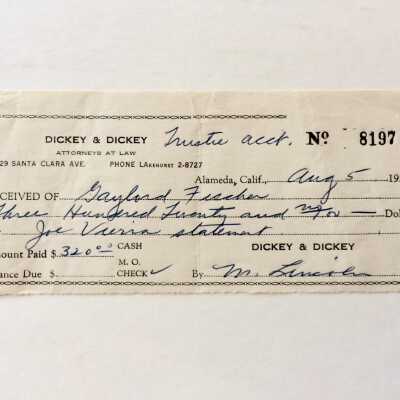 DICKEY & DICKEY Trustee acct. No 8197
ATTORNEYS AT LAW
29 SANTA CLARA AVE. PHONE LAKEHURST 2-8727
Alameda, Calif., Aug 5 19
CEIVED OF Gaylord Fischer
Three Hundred Twenty and no/100 — Dol
Joe Vierra statement
ount Paid $ 320.00 CASH DICKEY & DICKEY
M. O.
ance Due $ CHECK ✓ By M. Lincoln